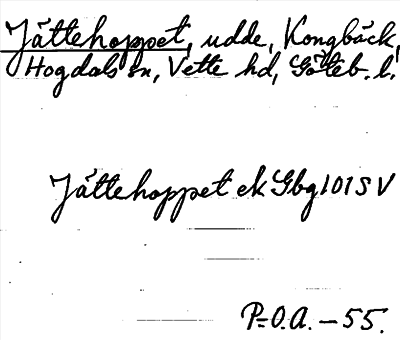 Jättehoppet, udde, Kongbäck,
Hogdals sn, Vette hd, Göteb. l.
Jättehoppet ek Gbg 101 S V
P=O.A. – 55.